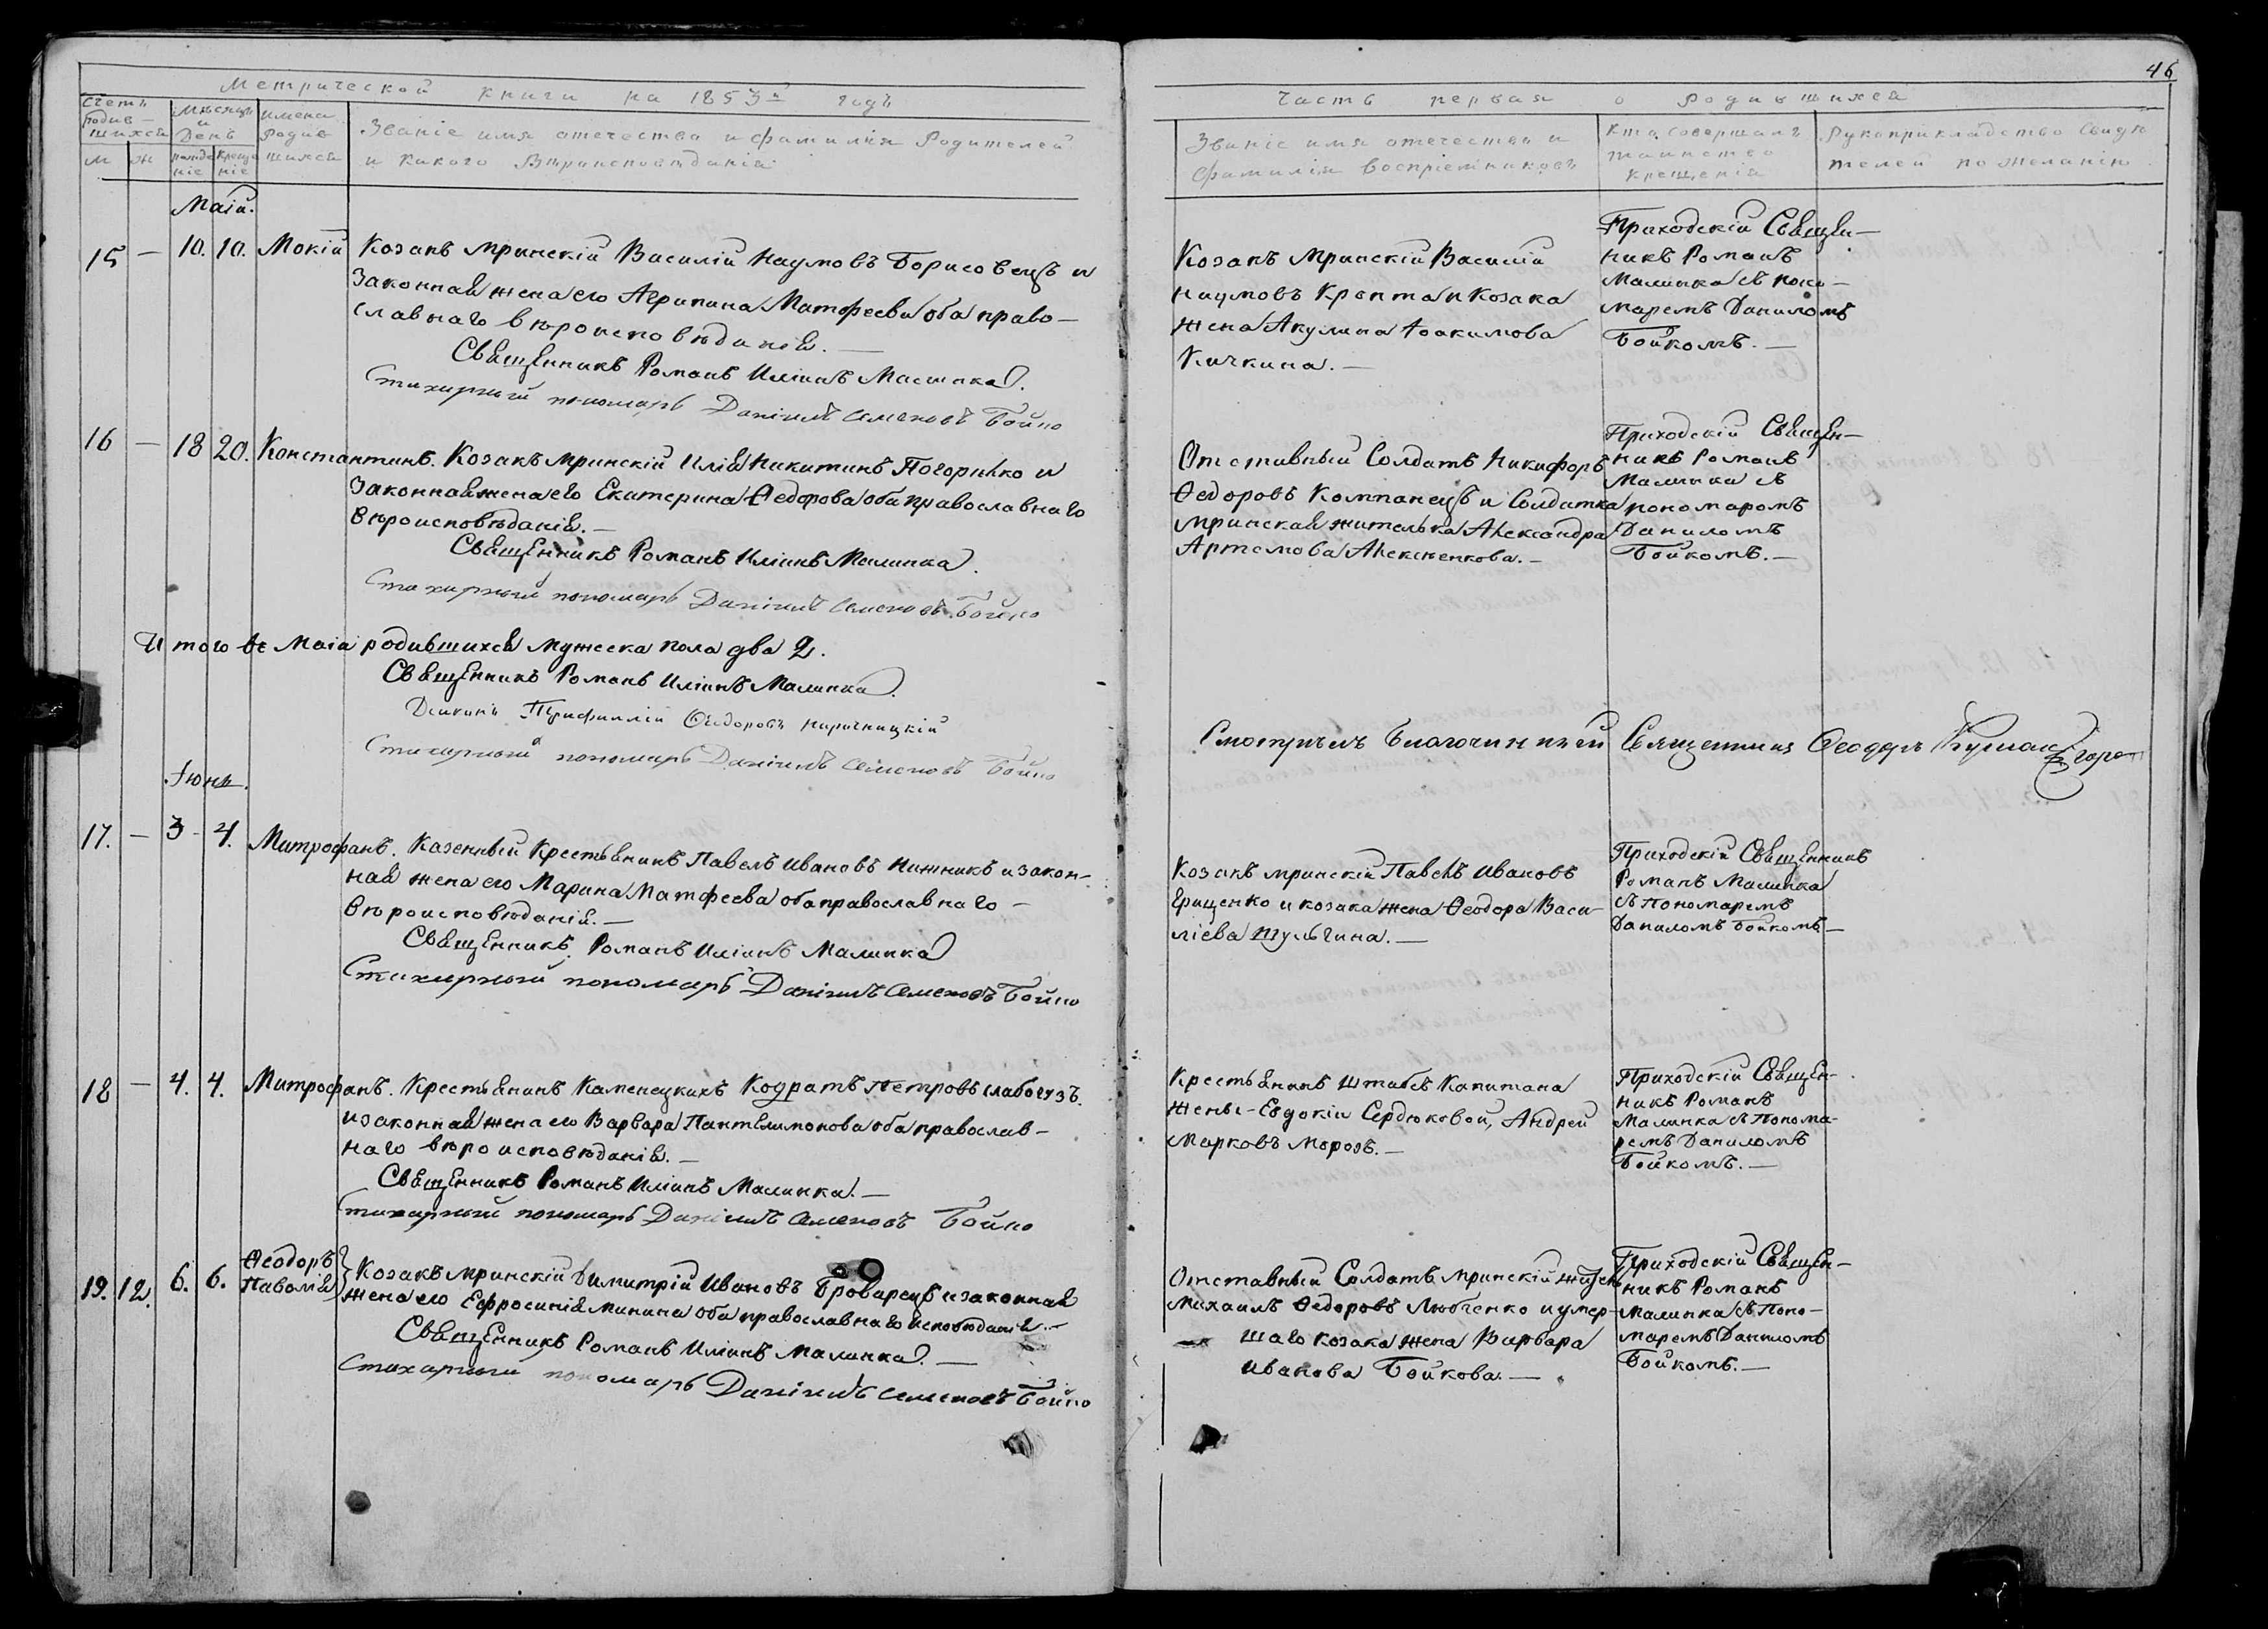 46
Метрической книги на 1853й годъ
Часть первая о родившихся
Счетъ родив-шихся
Мѣсяцъ и День
имена родив шихся
Званіе имя отечество и фамилія Родителей
и какого Вѣроисповѣданія
м ж рожде ніе креще ніе
Званіе имя отечество и
фамилія воспріемниковъ
кто совершалъ
таинство
крещенія
Рукоприкладство Свидѣ
телей по желанію
Маій.
15 — 10. 10. Мокій Козакъ Мринскій Василій Наумовъ Борисовецъ и
законная жена его Агрипина Матфеева оба право-
славнаго вѣроисповѣданія. —
Священникъ Романъ Иліинъ Малинка.
Стихарный пономарь Даніилъ Семеновъ Бойко
Козакъ Мринскій Василій
Наумовъ Кропта и Козака
жена Акулина Іоакимова
Кичкина. —
Приходскій Священ-
никъ Романъ
Малинка съ поно-
маремъ Даниломъ
Бойкомъ. —
16 — 18 20. Константинъ. Козакъ Мринскій Илія Никитинъ Погорилко и
законная жена его Екатерина Ѳедорова оба православнаго
вѣроисповѣданія. —
Священникъ Романъ Иліинъ Малинка.
Стихарный пономарь Даніилъ Семеновъ Бойко
Отставный Солдатъ Никифоръ
Ѳедоровъ Компанецъ и Солдатка
Мринская жителька Александра
Артемова Алексеенкова. —
Приходскій Священ-
никъ Романъ
Малинка съ
пономаромъ
Даниломъ
Бойкомъ. —
Итого въ Маіа родившихся мужеска пола два 2.
Священникъ Романъ Иліинъ Малинка.
Діаконъ Трифиллій Ѳеодоровъ
Стихарный пономарь Даніилъ Семеновъ Бойко
Смотрѣлъ Благочинный Священникъ Ѳеодоръ
Іюнь.
17. — 3 4. Митрофанъ. Казенный Крестьянинъ Павелъ Ивановъ Нижникъ и закон-
ная жена его Марина Матфеева оба православнаго —
вѣроисповѣданія. —
Священникъ Романъ Иліинъ Малинка
Стихарный пономарь Даніилъ Семеновъ Бойко
Козакъ мринскій Павелъ Ивановъ
Грищенко и козака жена Ѳеодора Васи-
ліева Шульгина. —
Приходскій Священникъ
Романъ Малинка
съ Пономаремъ
Даниломъ Бойкомъ —
18 — 4. 4. Митрофанъ. Крестьянинъ Каменецкихъ Кодратъ Петровъ Слабогузъ.
и законная жена его Варвара Пантелимонова оба православ-
наго вѣроисповѣданія. —
Священникъ Романъ Иліинъ Малинка. —
Стихарный пономарь Даніилъ Семеновъ Бойко
Крестьянинъ Штабсъ Капитана
жены - Евдокіи Сердюковой, Андрей
Марковъ Морозъ. —
Приходскій Священ-
никъ Романъ
Малинка съ Понома-
ремъ Даниломъ
Бойкомъ. —
19. 12. 6. 6. Ѳеодоръ
Паволія
Козакъ мринскій Димитрій Ивановъ Броварецъ и законная
жена его Ефросинія Минина оба православнаго исповѣданія. —
Священникъ Романъ Иліинъ Малинка. —
Стихарный пономарь Даніилъ Семеновъ Бойко
Отставный Солдатъ мринскій житель
Михаилъ Ѳедоровъ Любченко и умер-
шаго козака жена Варвара
Иванова Бойкова. —
Приходскій Священ-
никъ Романъ
Малинка съ Поно-
маремъ Даниломъ
Бойкомъ. —